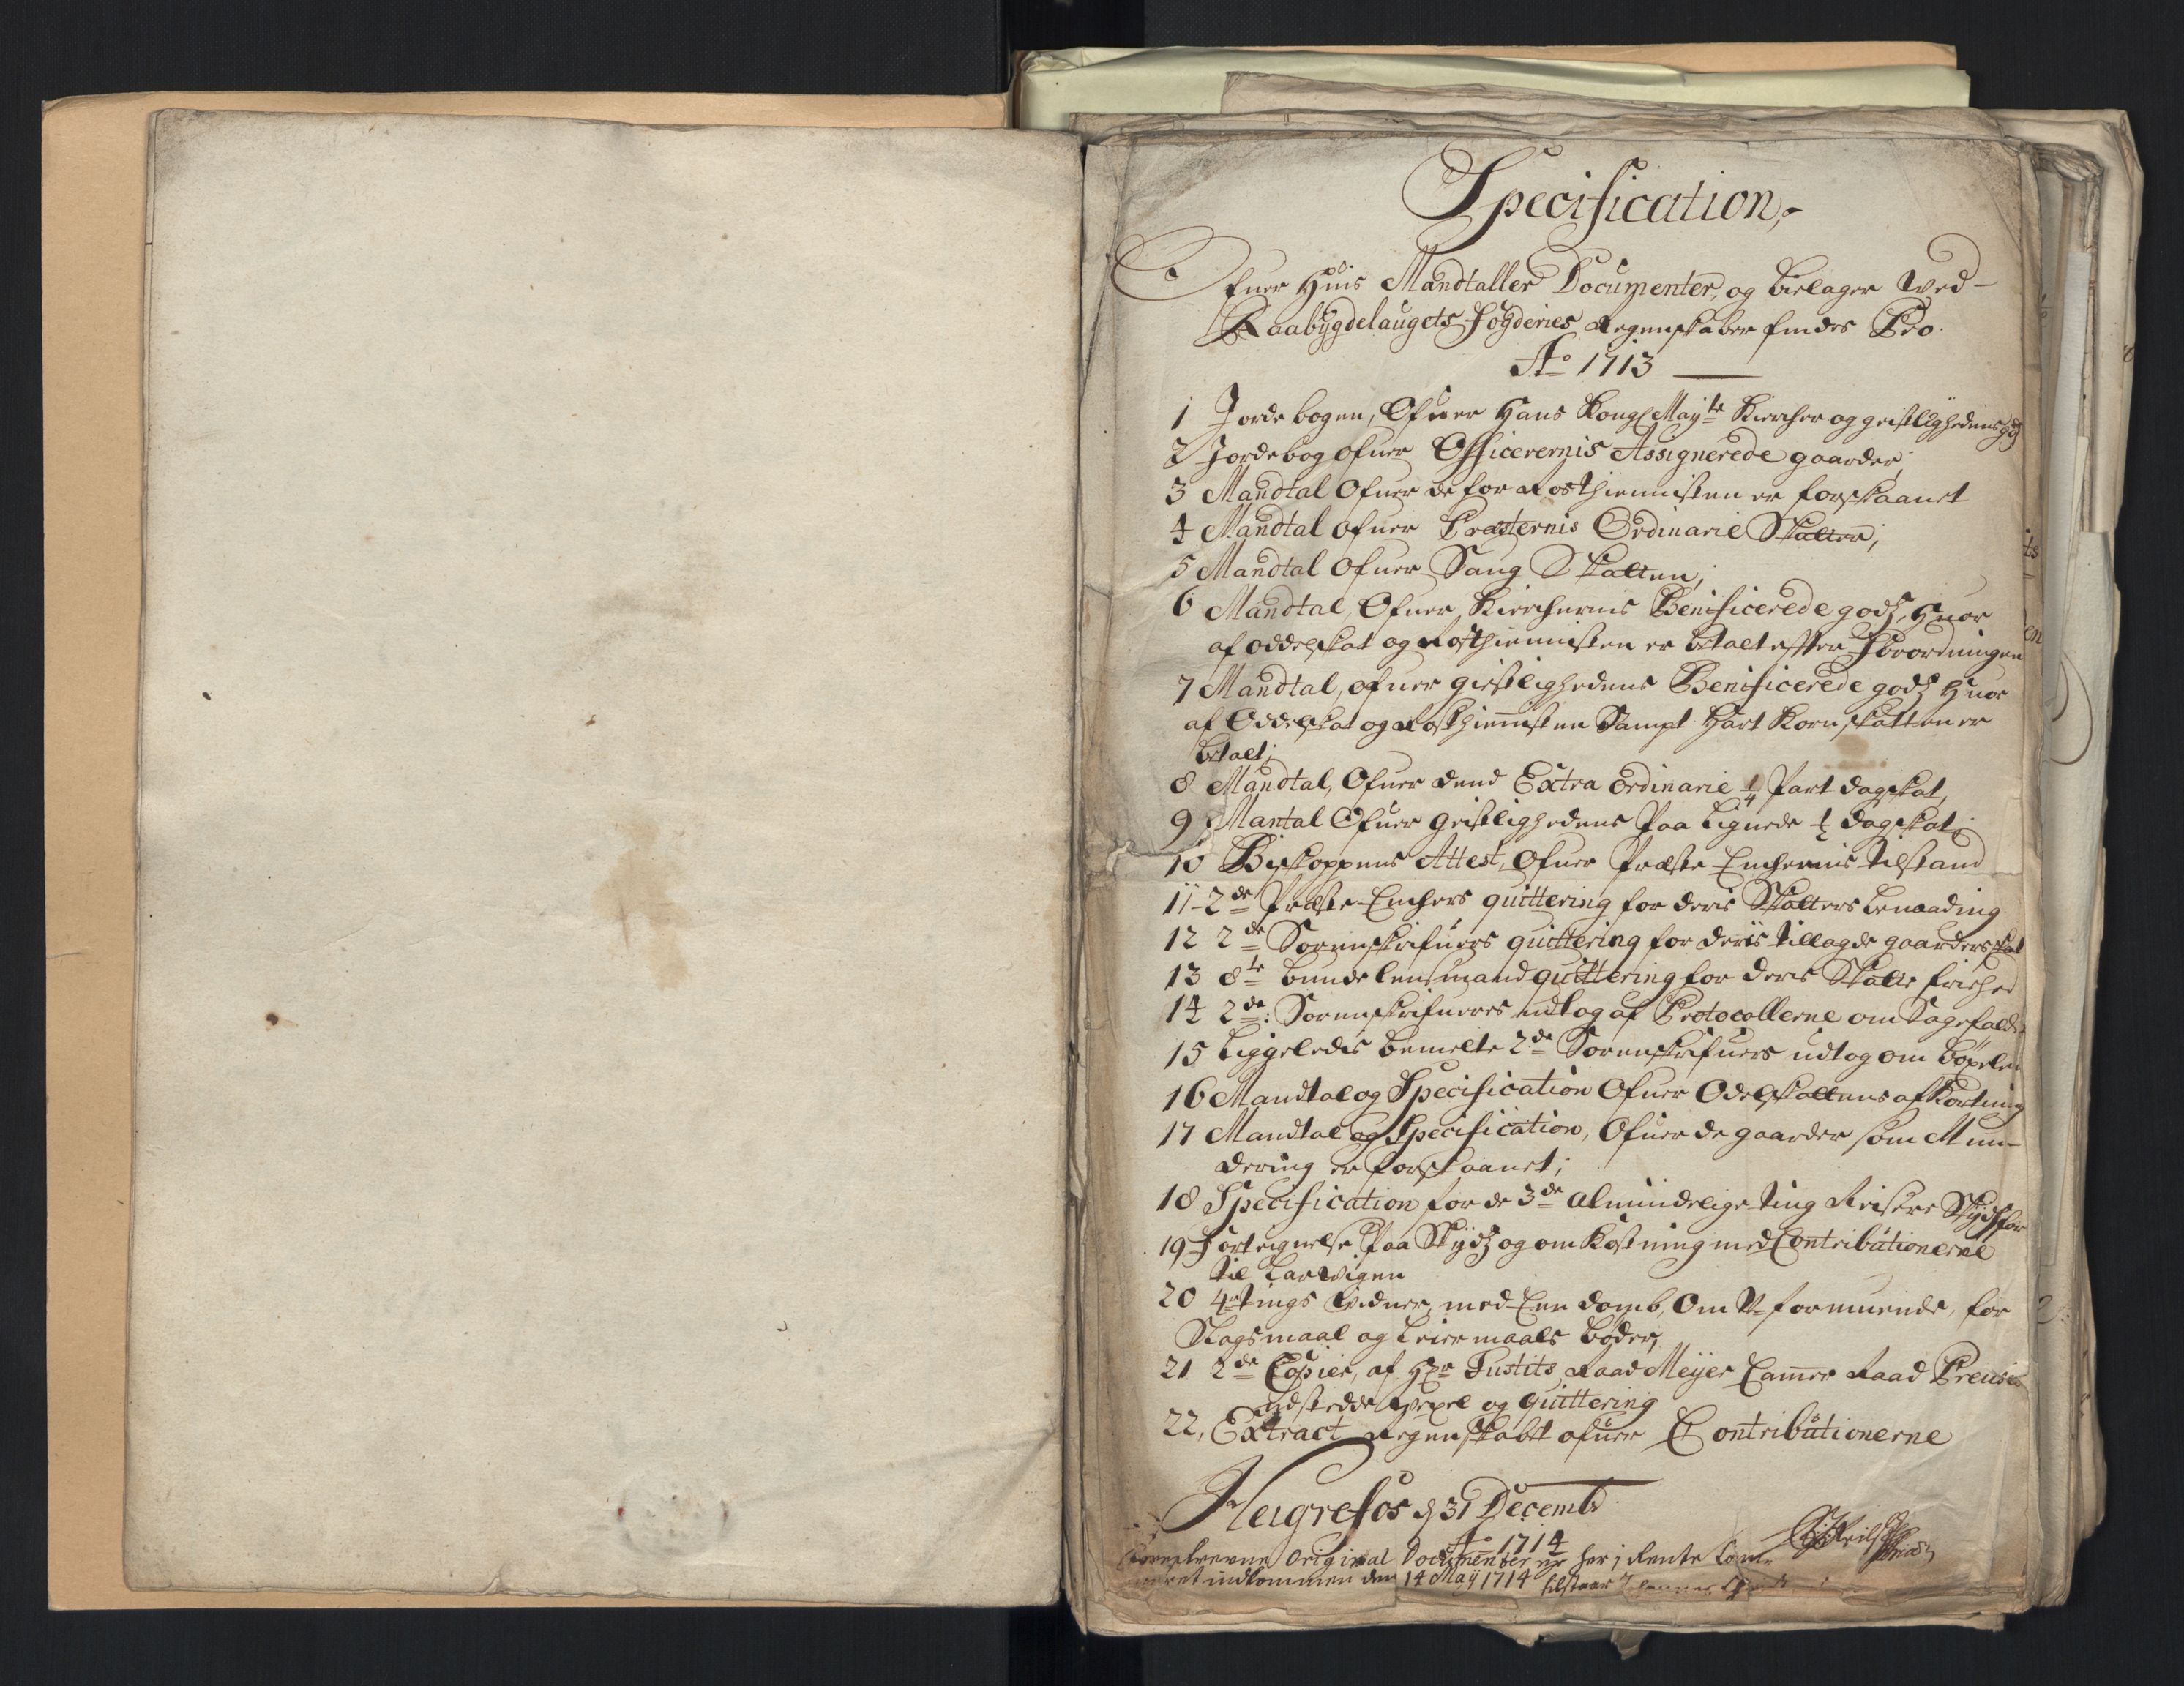 Specification,
Ofuer Huis Mandtaller Documenter, og bielager wed
Raabygdelaugets Fogderies Regenskaber findes Pro.
Ao 1713
1 Jordebogen, Ofuer Hans Kongl May.te Kircher og geistlighedens godz
2 Jordebog ofuer Officerernis Assignerede gaarder,
3 Mandtal Ofuer de for Rosthienisten er forskaanet
4 Mandtal ofuer Præsternis Ordinarie Skatter,
5 Mandtal Ofuer Saug Skatten,
6 Mandtal, Ofuer Kirchernis Benificerede godz, Huor
af oddelskat og Rosthienisten er betalt efter Forordningen
7 Mandtal, ofuer gieistlighedens Benificerede godz Huor
af Oddelskat og Rosthienisten Sampt Hart Korn skatten er
betalt;
8 Mandtal, Ofuer dend Extra ordinarie 1/4 Part dagskat,
9 Mantal Ofuer geistlighedens Paa lignede 1/2 dagskat;
10 Biskoppens Attest, Ofuer Præste-Enchernis tilstand
11 2de Præste-Enchers quittering for deris Skatters benaading
12 2de Sorenskrifuers quittering for deris tillagde gaarders skat
13 8te bunde lensmand quittering for deris Skatte frihed
14 2de: Sorenskrifueres udtog af Protocollerne om Sagefald
15 Liggeledis bemelte 2de Sorenskrifuers udtog om bøxelen
16 Mandtal og Specification Ofuer Odelskattens afkortning
17 Mandtal og Specification, Ofuer de gaarder som Mun-
dering er forskaanet;
18 Specification for de 3de almindelige ting Reisers Skydsfor
19 Forteignelse Paa Skydz og om Kostning med Contributionerne
til Laurwigen
20 4re tings Widner, med Een domb, Om U-formuende, for
Slagsmaal og Leiermaals bøder,
21 2de Copier, af Hr Justits Raad Meijer Camer Raad Preusis
udstedde wexel og quittering
22, Extract Regenskabet ofuer Contributionerne
Heigrefos d 31 Decembr
Ao 1714
Forreskrevne Original Documenter er her i Rente Cam-
meret indkommen den 14 Maij 1714 tilstaar